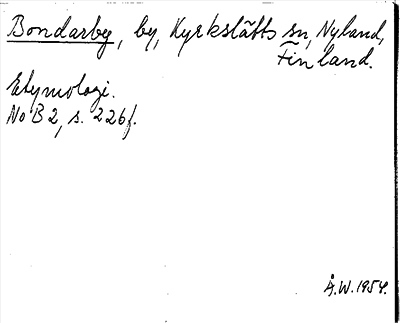 Bondarby, by, Kyrkslätts sn, Nyland,
Finland.
Etymologi.
NoB 2, s. 226f.
Å.W. 1954.